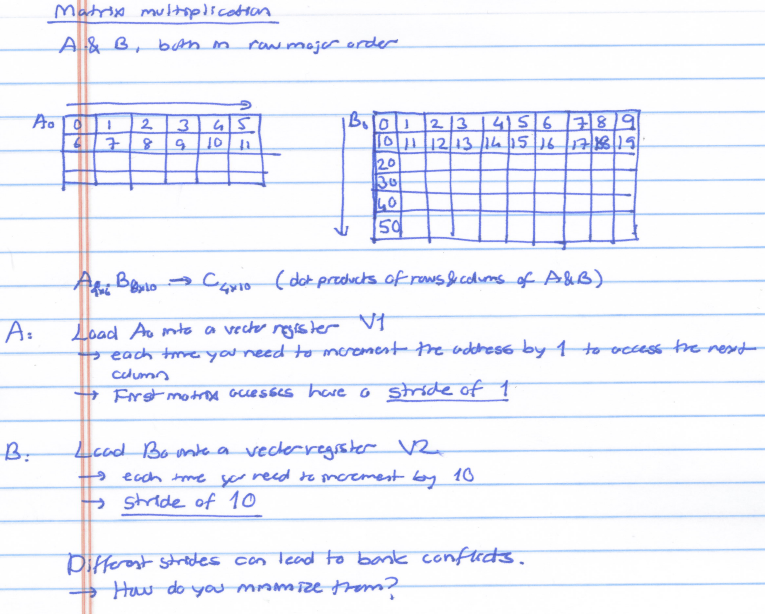 Matrix multiplication
A & B, both in row major order
A0 0 1 2 3 4 5
6 7 8 9 10 11
B0 0 1 2 3 4 5 6 7 8 9
10 11 12 13 14 15 16 17 18 19
20
30
40
50
A4x6 B6x10 → C4x10 (dot products of rows & colums of A&B)
A: Load A0 into a vector register V1
→ each time you need to increment the address by 1 to access the next
column
→ First matrix accesses have a stride of 1
B: Load B0 into a vector register V2
→ each time you need to increment by 10
→ stride of 10
Different strides can lead to bank conflicts.
→ How do you minimize them?